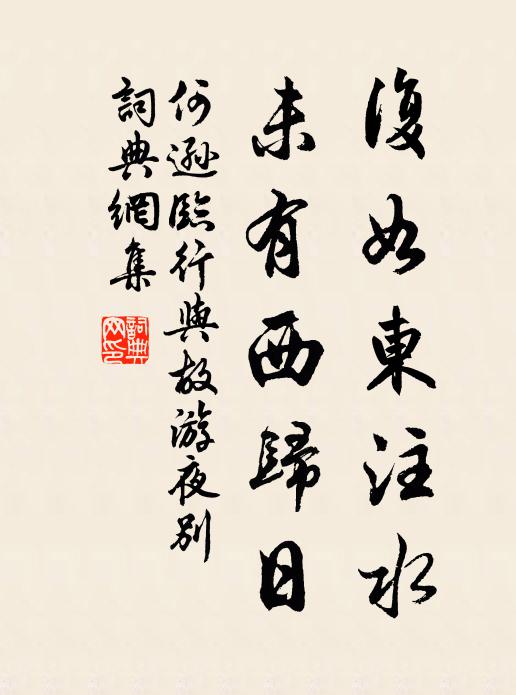 復如東注水
未有西歸日
何遜臨行與故游夜別
詞典網集
詞典
网印